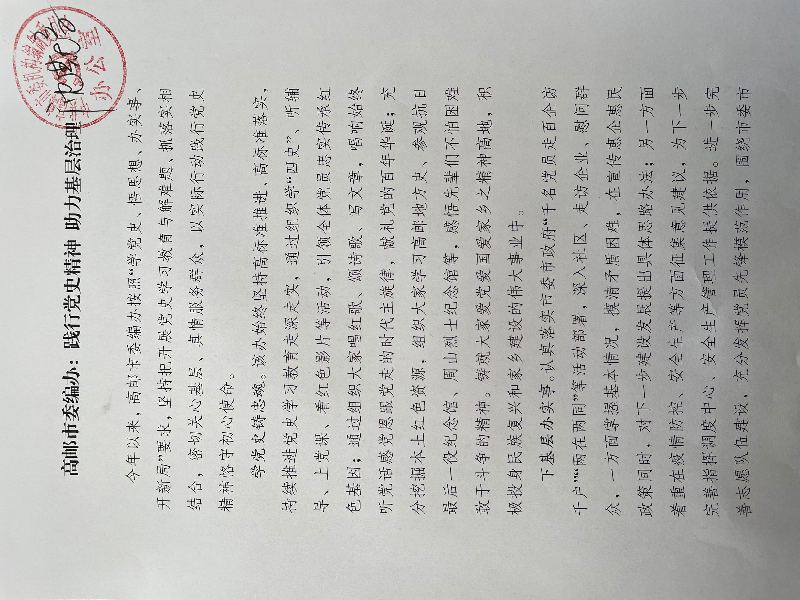 高邮市委编办：践行党史精神 助力基层治理
办公室
今年以来，高邮市委编办按照“学党史、悟思想、办实事、
开新局”要求，坚持把开展党史学习教育与解难题、抓落实相
结合，密切关心基层、真情服务群众，以实际行动践行党史
精神恪守初心使命。
学党史铸忠魂。该办始终坚持高标准推进、高标准落实，
持续推进党史学习教育走深走实，通过组织学“四史”、听辅
导、上党课、看红色影片等活动，引领全体党员忠实传承红
色基因；通过组织大家唱红歌、颂诗歌、写文章，唱响始终
听党话感党恩跟党走的时代主旋律，献礼党的百年华诞；充
分挖掘本土红色资源，组织大家学习高邮地方史、参观抗日
最后一役纪念馆、周山烈士纪念馆等，感悟先辈们不怕困难
敢于斗争的精神。铸就大家爱党爱国爱家乡之精神高地，积
极投身民族复兴和家乡建设的伟大事业中。
下基层办实事。认真落实市委市政府“千名党员走百企访
千户”“两在两同”等活动部署，深入社区、走访企业、慰问群
众，一方面掌握基本情况，摸清矛盾困难，在宣传惠企惠民
政策同时，对下一步建设发展提出具体思路办法；另一方面
着重在疫情防控、安全生产等方面征集意见建议，为下一步
完善指挥调度中心、安全生产管理工作提供依据。进一步完
善志愿队伍建设，充分发挥党员先锋模范作用，围绕市委市